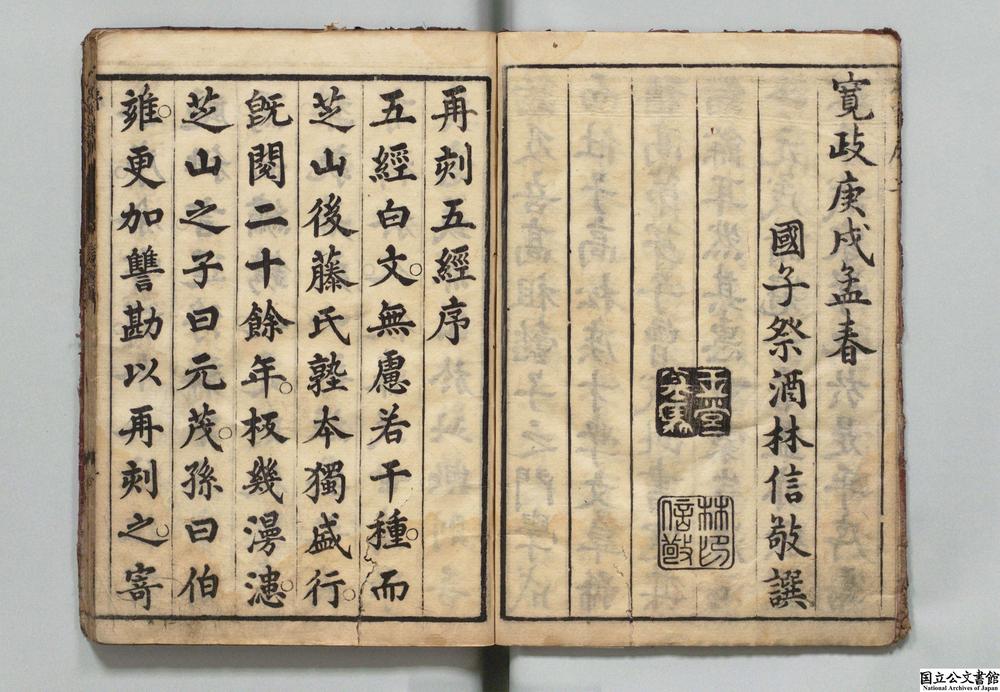 寛政庚戌孟春
國子祭酒林信敬譔
林信敬印
再刻五經序
五經白文。無慮若干種。而
芝山後藤氏塾本獨盛行。
既閱二十餘年。板幾漫漶。
芝山之子曰元茂。孫曰伯
雍。更加讐勘以再刻之。寄
国立公文書館
National Archives of Japan